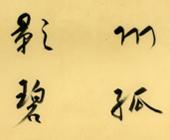 州孤
影碧